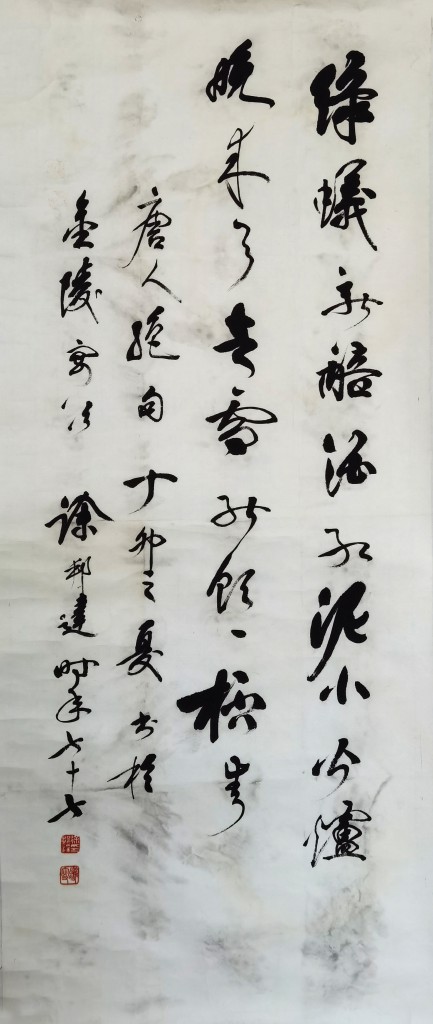 綠蟻新醅酒紅泥小火爐
晚來天雪能飲一桮無
唐人絕句丁卯之夏書於
金陵寓次徐邦達時年七十七